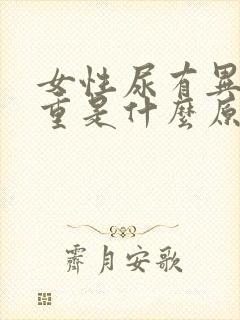 女性尿有異
重是什麼原
霽月安歌